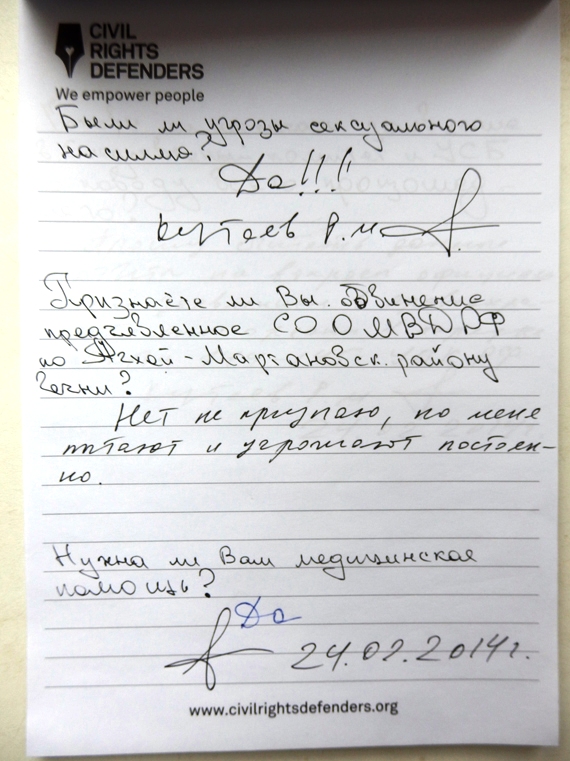 CIVIL
RIGHTS
DEFENDERS
We empower people
Были ли угрозы сексуального
насилия?
Да!!!
Кутаев Р.М.
Признаёте ли Вы обвинение
предъявленное СО О МВД РФ
по Ачхой-Мартановск. району
Чечни?
Нет не признаю, но меня
пытают и угрожают постоян-
но.
Нужна ли Вам медицинская
помощь?
Да
24.02.2014г.
www.civilrightsdefenders.org